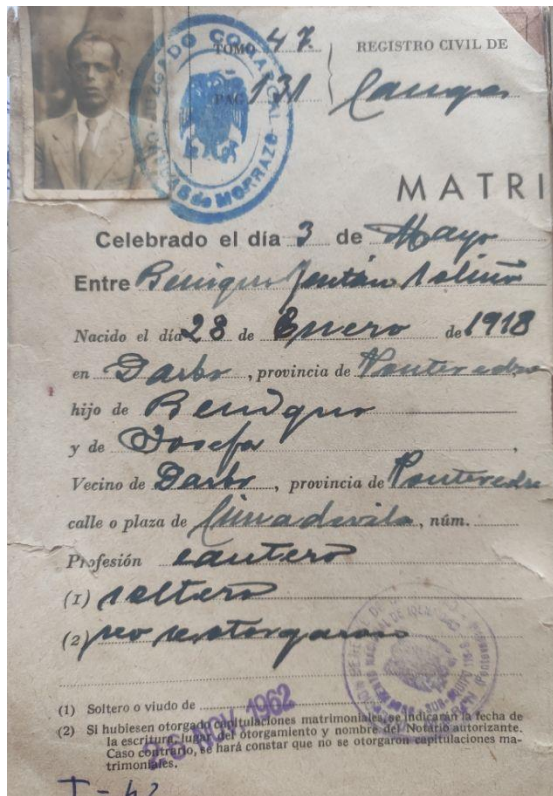 TOMO 47 REGISTRO CIVIL DE
PAG 131 Cangas
JUZGADO COMARCAL CANGAS de MORRAZO
MATRI
Celebrado el día 3 de Mayo
Entre Benigno Santán Soliño
Nacido el día 28 de Enero de 1918
en Darbo, provincia de Pontevedra
hijo de Benigno
y de Josefa,
Vecino de Darbo, provincia de Pontevedra
calle o plaza de Cimadevila, núm.
Profesión cantero
(1) soltero
(2) no se otorgaron
(1) Soltero o viudo de
26 NOV. 1962
(2) Si hubiesen otorgado capitulaciones matrimoniales, se indicarán la fecha de
la escritura, lugar del otorgamiento y nombre del Notario autorizante.
Caso contrario, se hará constar que no se otorgaron capitulaciones ma-
trimoniales.